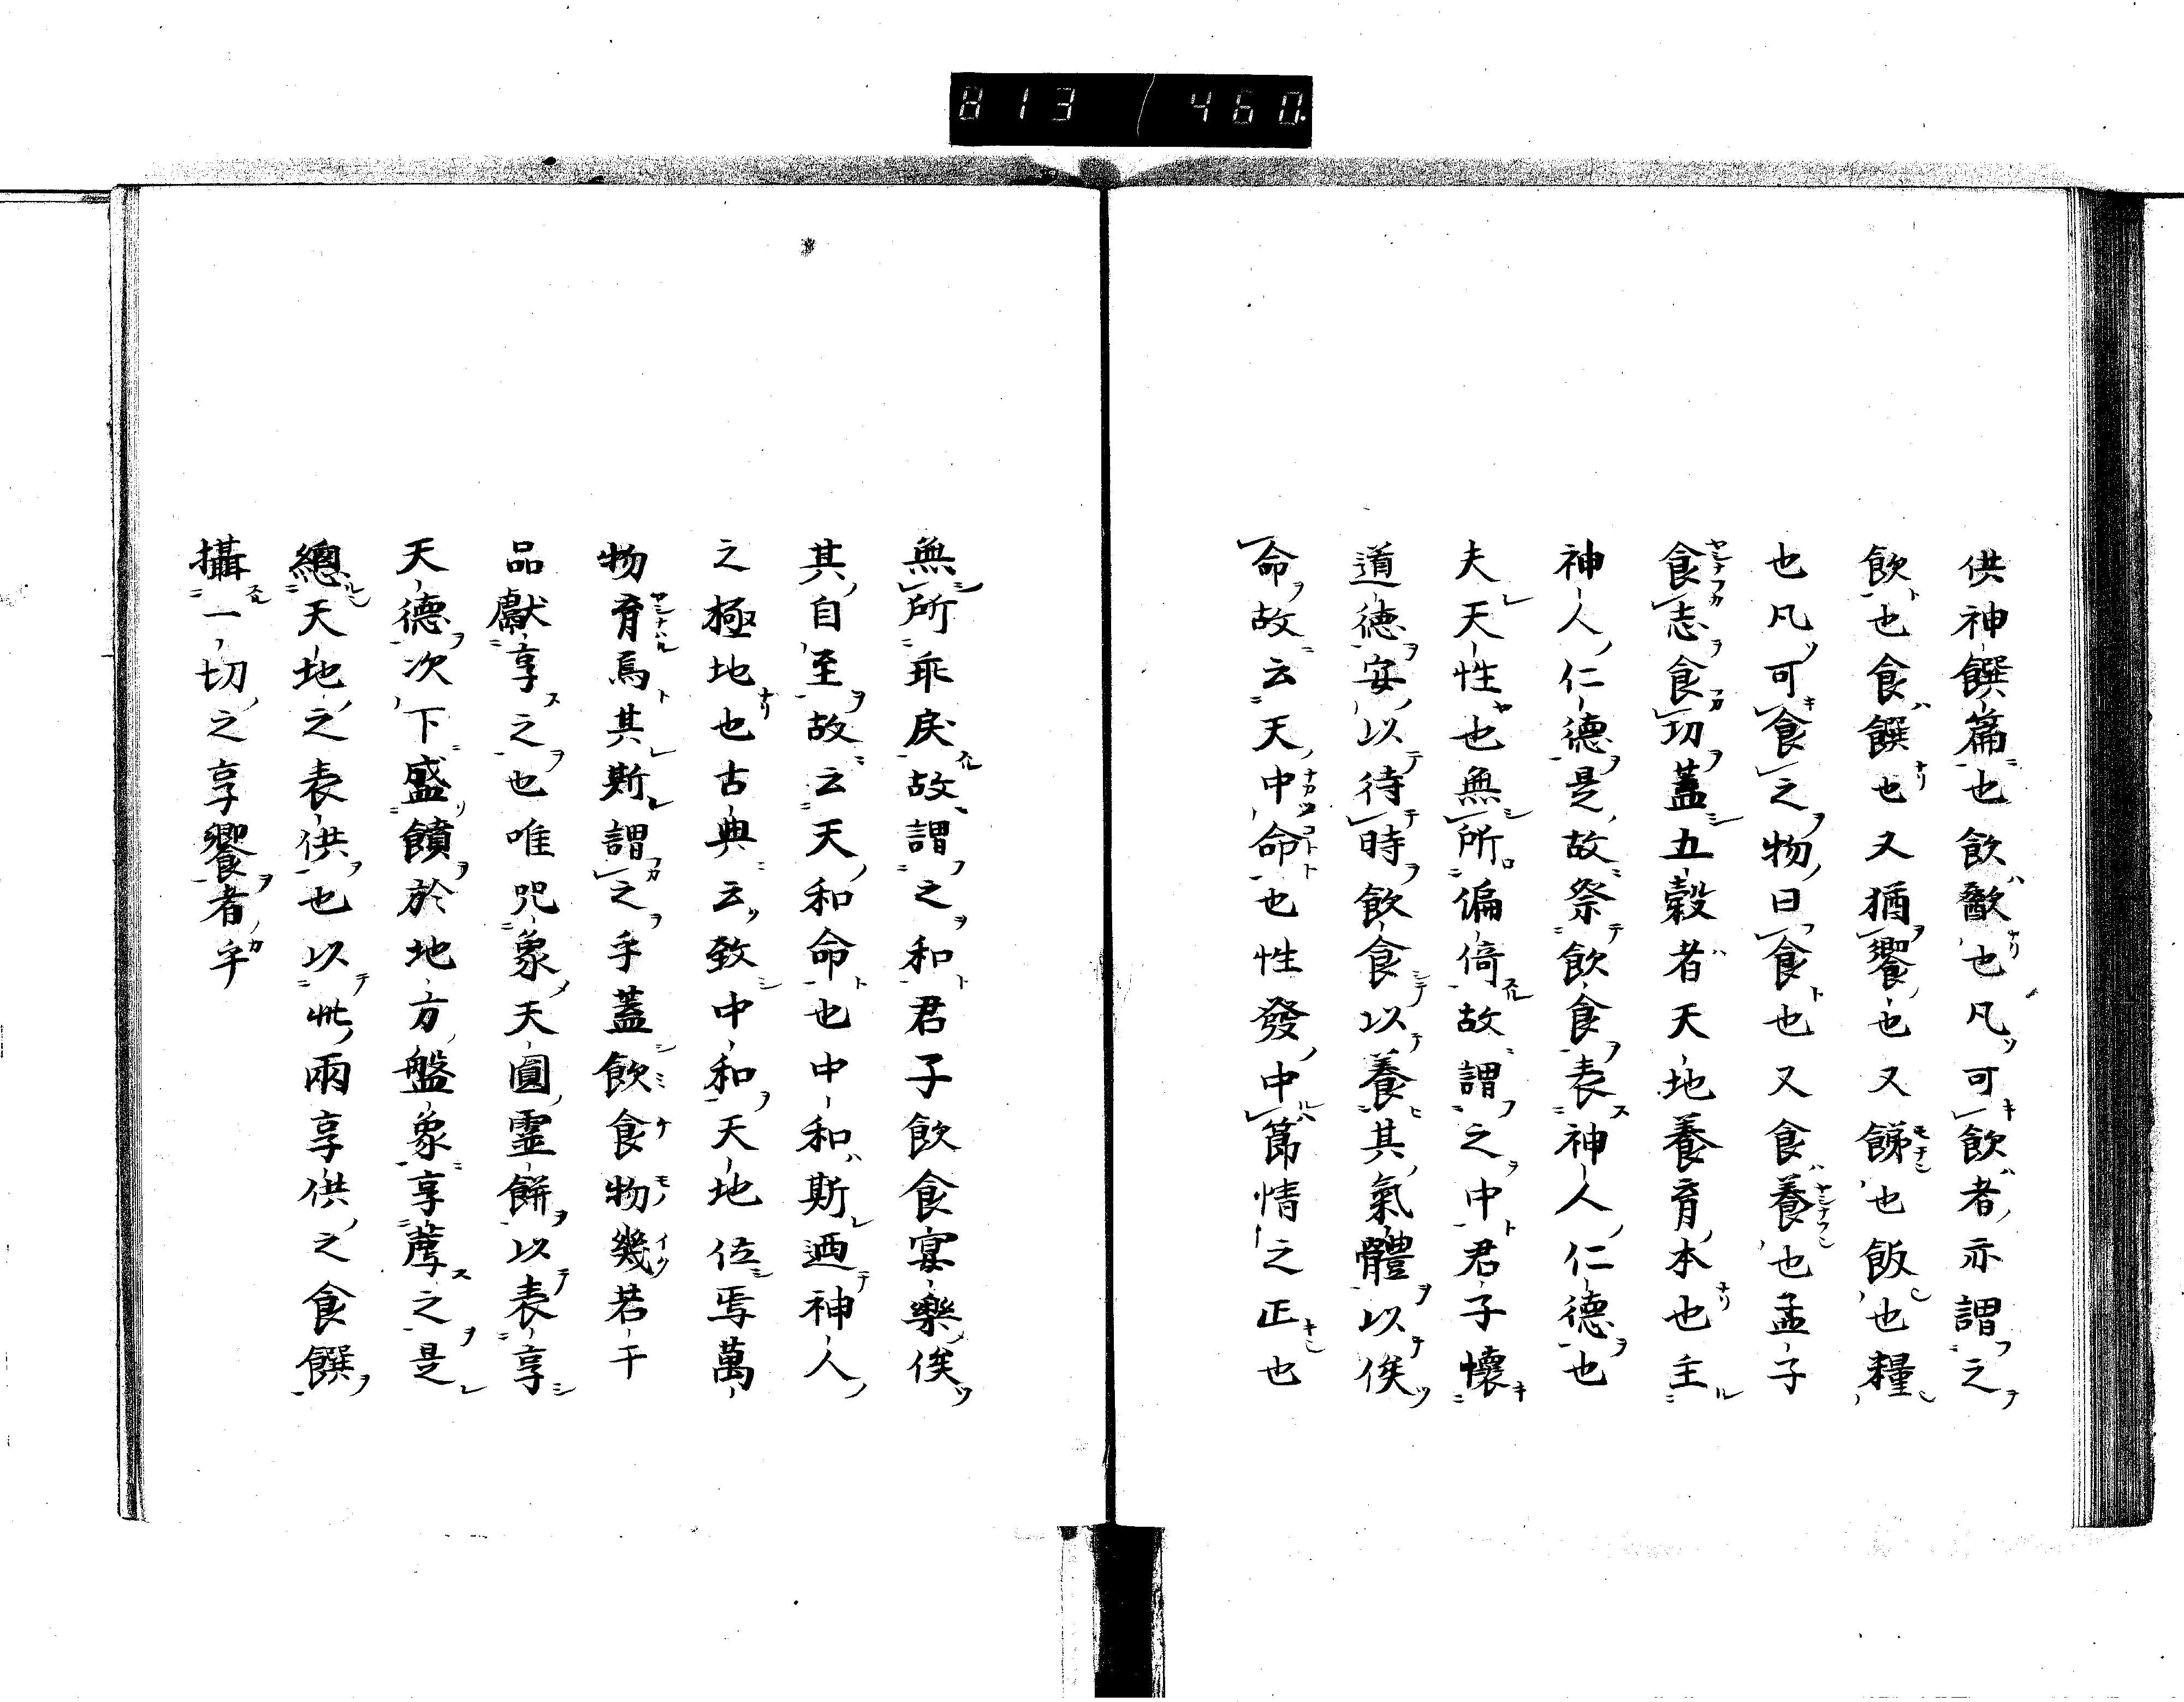 813 460.
供神饌篇也飲歠也凡可飲者亦謂之
飲也食饌也又猶饗也又餙也飯也糧
也凡可食之物曰食也又食養也孟子
食志食功蓋五穀者天地養育本也主
神人仁德是故祭飲食表神人仁德也
夫天性也無所偏倚故謂之中君子懷
道德安以待時飲食以養其氣體以俟
命故云天中命也性發中節情之正也
無所乖戾故謂之和君子飲食宴樂俟
其自至故云天和命也中和斯迺神人
之極地也古典云致中和天地位焉萬
物育焉其斯謂之乎蓋飲食物幾若干
品獻享之也唯咒象天圓霊餅以表享
天德次下盛饋於地方盤象享薦之是
總天地之表供也以此兩享供之食饌
攝一切之享饗者乎